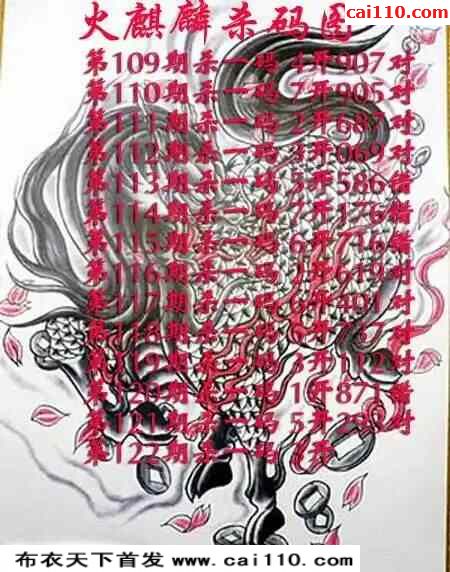 cai110.com
火麒麟杀码图
第109期杀一码 4开907对
第110期杀一码 7开905对
第111期杀一码 2开687对
第112期杀一码 3开069对
第113期杀一码 5开586错
第114期杀一码 7开176错
第115期杀一码 6开716错
第116期杀一码 开619对
第117期杀一码 开401对
第118期杀一码 开 对
第119期杀一码 3开112对
第120期杀一码 1开871错
第121期杀一码 5开 对
第122期杀一码 开
布衣天下首发 www.cai110.com